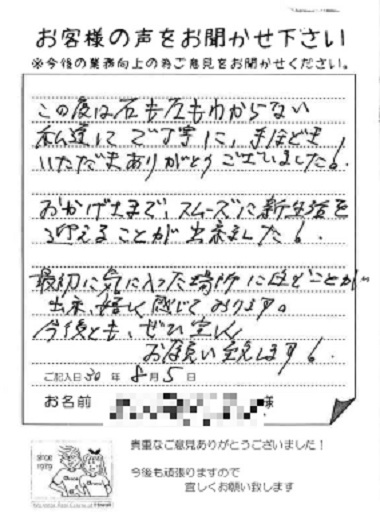 お客様の声をお聞かせ下さい
※今後の業務向上の為ご意見をお聞かせください。
この度は右も左もわからない
私達にご丁寧に、手ほどき
いただきありがとうございました!
おかげさまで、スムーズに新生活を
迎えることが出来ました!
最初に気に入った場所に住むことが
出来、嬉しく感じております。
今後とも、ぜひ宜しく
お願い致します!
ご記入日 30 年 8 月 5 日
お名前 様
since 1979
貴重なご意見ありがとうございました!
今後も頑張りますので
宜しくお願い致します